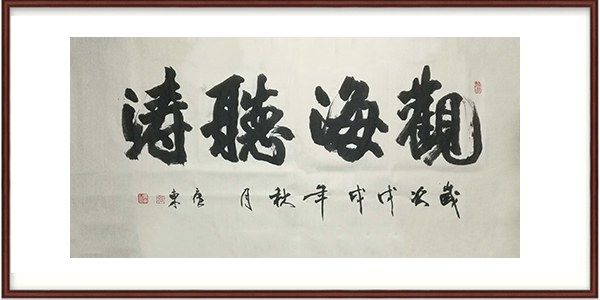 觀海聽涛
歲次戊戌年秋月 東